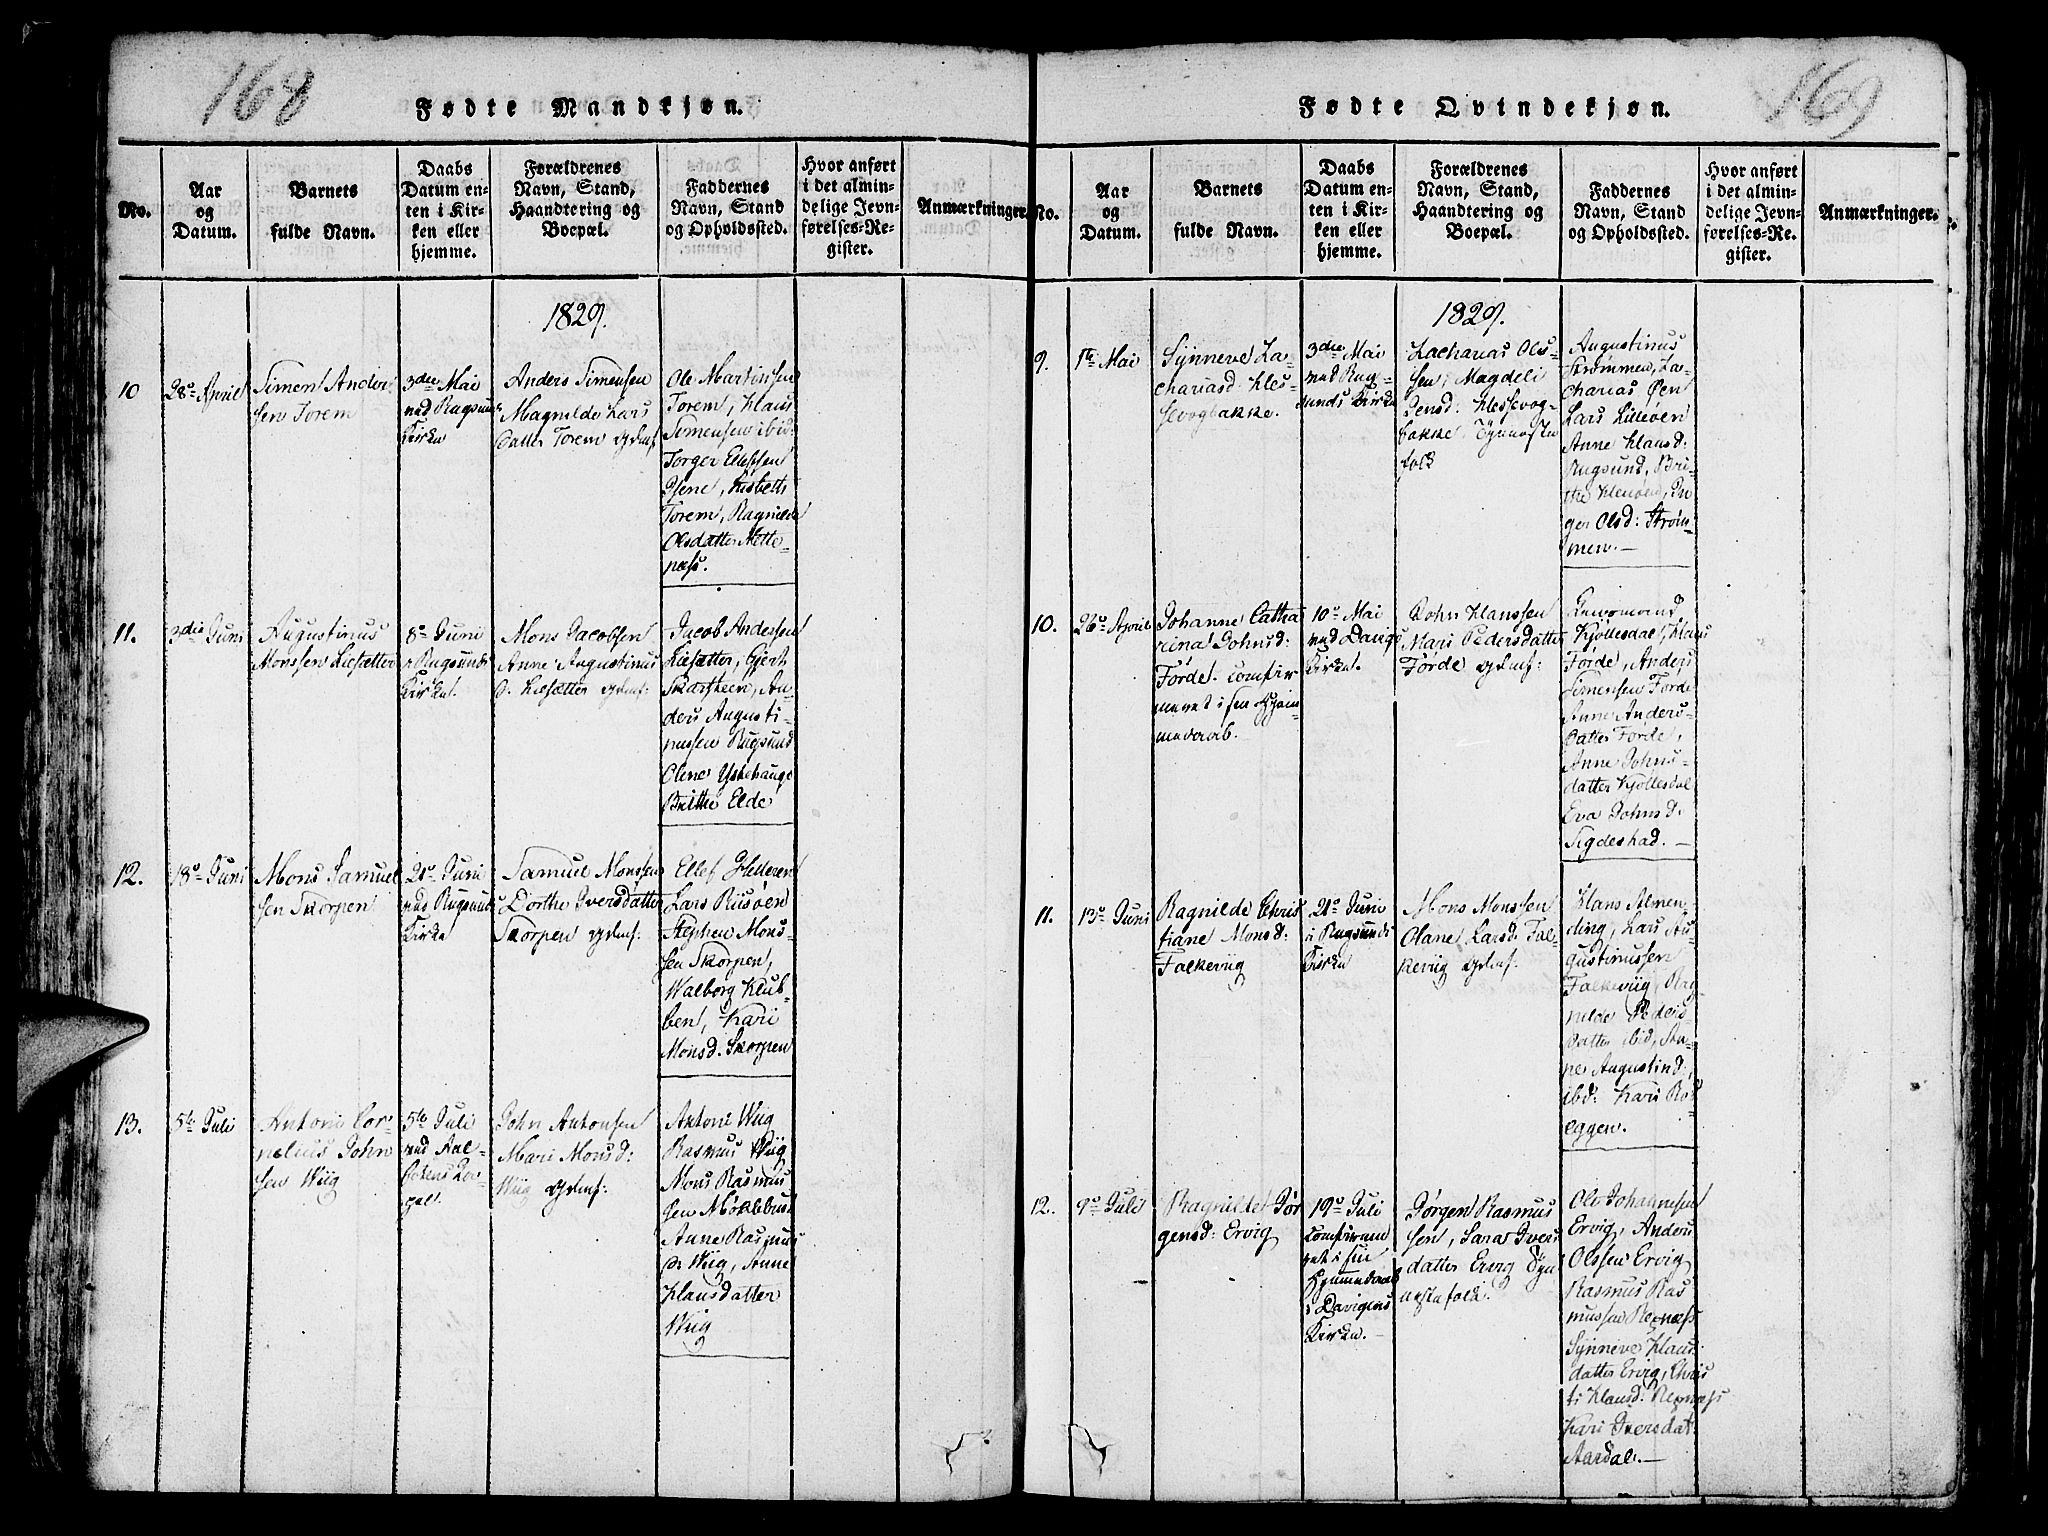 168
Fødte Mandkjøn.
No.
Aar
og
Datum.
Barnets
fulde Navn.
Daabs
Datum en-
ten i Kir-
ken eller
hjemme.
Forældrenes
Navn, Stand,
Haandtering og
Boepæl.
Faddernes
Navn, Stand
og Opholdssted.
Hvor anført
i det almin-
delige Jevn-
førelses-Re-
gister.
Anmærkninger.
1829.
10
28de April
Simen Ander
sen Torem
3die Mai
ved Rugsunds
Kirke
Anders Simensen
Magnilde Lars
datter Torem
Ole Martinsen
Torem, Klaus
Simensen ibid:
Torger Ellefsen
Isene, Lisbeth
Torem, Ragnilde
Olsdatter Nette-
næss.
11.
3die Juni
Augustinus
Monssen Liesætter
8de Juni
i Rugsunds
Kirke.
Mons Jacobsen
Anne Augustinus
d. Liesætter
Jacob Andersen
Liesætter, Gjert
Skarsteen, An-
ders Augusti-
nussen Rugsund
Olene Ytrehauge
Brithe Elde
12.
18de Juni
Mons Samuel
sen Skorpen
21de Juni
ved Rugsunds
Kirke
Samuel Monssen
Dorthe Iversdatter
Skorpen
Ellef Helleren
Lars Risøen
Stephen Mons-
sen Skorpen,
Walborg Klub-
ben, Kari
Monsd. Skorpen
13.
5te Juli
Antoni Cor
nelius John
sen Wiig
5te Juli
ved Aal-
John Antonsen
Mari Monsd:
Wiig
Antoni Wiig
Rasmus Wiig
Mons Rasmus
sen Møklebust
Anne Rasmus
d. Wiig, Anne
Klausdatter
Wiig
169
Fødte Qvindekjøn.
No.
Aar
og
Datum.
Barnets
fulde Navn.
Daabs
Datum en-
ten i Kir-
ken eller
hjemme.
Forældrenes
Navn, Stand,
Haandtering og
Boepæl.
Faddernes
Navn, Stand
og Opholdssted.
Hvor anført
i det almin-
delige Jevn-
førelses-Re-
gister.
Anmærkninger.
1829.
9.
1ste Mai
Synneve Za-
chariasd: Kles-
sevogbakke.
3die Mai
ved Rug-
sunds Kirke
Zacharias Ols-
sen, Magdeli
Jensd: Klessevog-
bakke. Tjeneste
folk
Augustinus
Strømmen, Za-
charias Øen
Lars Lilleøen
Anne Klausd:
Rugsund, Bri-
the
ger Olsd: Strøm-
men.
10.
26de April
Johanne Catha
rina Johnsd:
Førde. confir-
meret i sin Hjem-
medaab.
10de Mai
ved Davigs
Kirke.
John Klaussen
Mari Pedersdatter
Førde
Kjøllesdal, Klaus
Førde, Anders
Simensen Førde
Anne Anders-
datter Førde,
Anne Johns-
datter Kjøllesdal
Eva Johnsd:
Sigdestad.
11.
13de Juni
Ragnilde Chris
tiane Monsd:
Falkeviig
21de Juni
i Rugsunds
Kirke
Mons Monssen
Olane Larsd: Fal-
keviig
Hans Almen-
ding, Lars Au-
gustinussen
Falkeviig, Rag-
nilde Peders-
datter ibid, An-
ne Augustind.
ibd: Kari Ros
eggen.
12.
9de Juli
Ragnilde Jør
gensd: Ervig
19de Juli
Confirme-
ret i sin
Hjemmedaab
i Davigens
Kirke.
Jørgen Rasmus
sen, Sara Ivers
datter Ervig Tje
nestefolk.
Ole Johannesen
Ervig, Anders
Olssen Ervig
Rasmus Ras
mussen Repnæss
Synneve Klaus
datter Ervig, Chris
ti Klausd: Repnæss
Kari Iversdat.
Aardal.